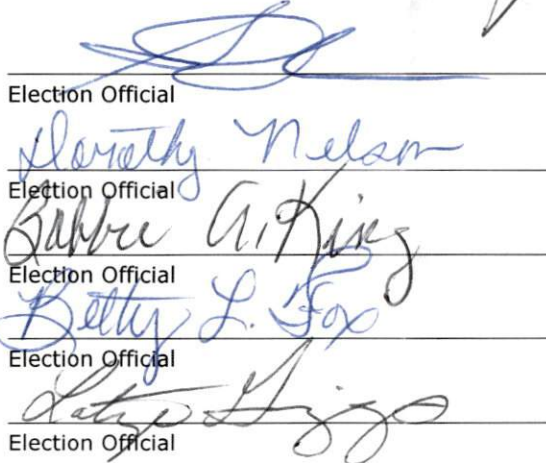 Election Official
Dorothy Nelson
Election Official
Bobbie A. King
Election Official
Betty L. Fox
Election Official
Election Official